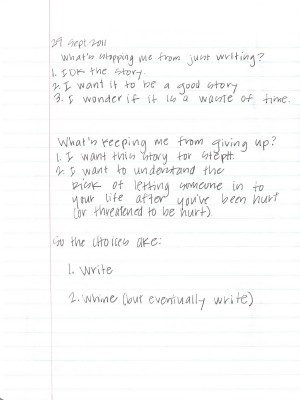 29 Sept 2011
What's stopping me from just writing?
1. IDK the story.
2. I want it to be a good story
3. I wonder if it is a waste of time.
What's keeping me from giving up?
1. I want this story for Steph.
2. I want to understand the
risk of letting someone in to
your life after you've been hurt
(or threatened to be hurt).
So the choices are:
1. Write
2. Whine (but eventually write)